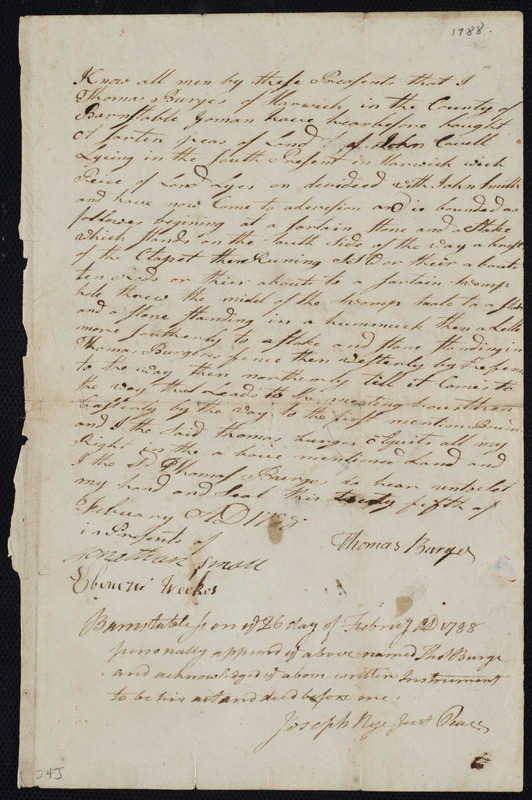 1788.
Know all men by these Presents that I
Thomas Burges of Harwich, in the County of
Barnstable Yoman have hearbefore bought
a sarten peas of Land of John Cowell
Lying in the South Present in Harwich wich
Peice of Land Lyes on devideed with John Smith
and have now Come to a devesion and is bounded as
followes begining at a sartain stone and a stake
which stands on the South Side of the way a bought
of the Clapet then Runing S S O or their a bouts
ten rods or thier abouts to a sartain swamp
hole threw the midel of the swamp hole to a stake
and a stone standing in a hummuck then a Little
more sutherly to a stake and stone standing in
Thomas Burgeses fence then westerly by the fence
to the way then northernly till it Comes to
the way that Leads to the meating house then
Easterly by the way to the first mention Bound
and I the said thomas burges a Quite all my
Right to the a bove mentioned Land and
I the Sd Thomas Burges do hear unto set
my hand and seal this twenty fifth of
February AD 1788
in Presents of
Thomas Burges
Jonathan Small
Ebenezer Weekes
Barnstable ss on ye 26 day of Febry AD 1788
personally appeared ye above named Tho Burge
and acknowledged ye above written Instrument
to be his act and deed before me.
Joseph Nye Just Peace
J4J